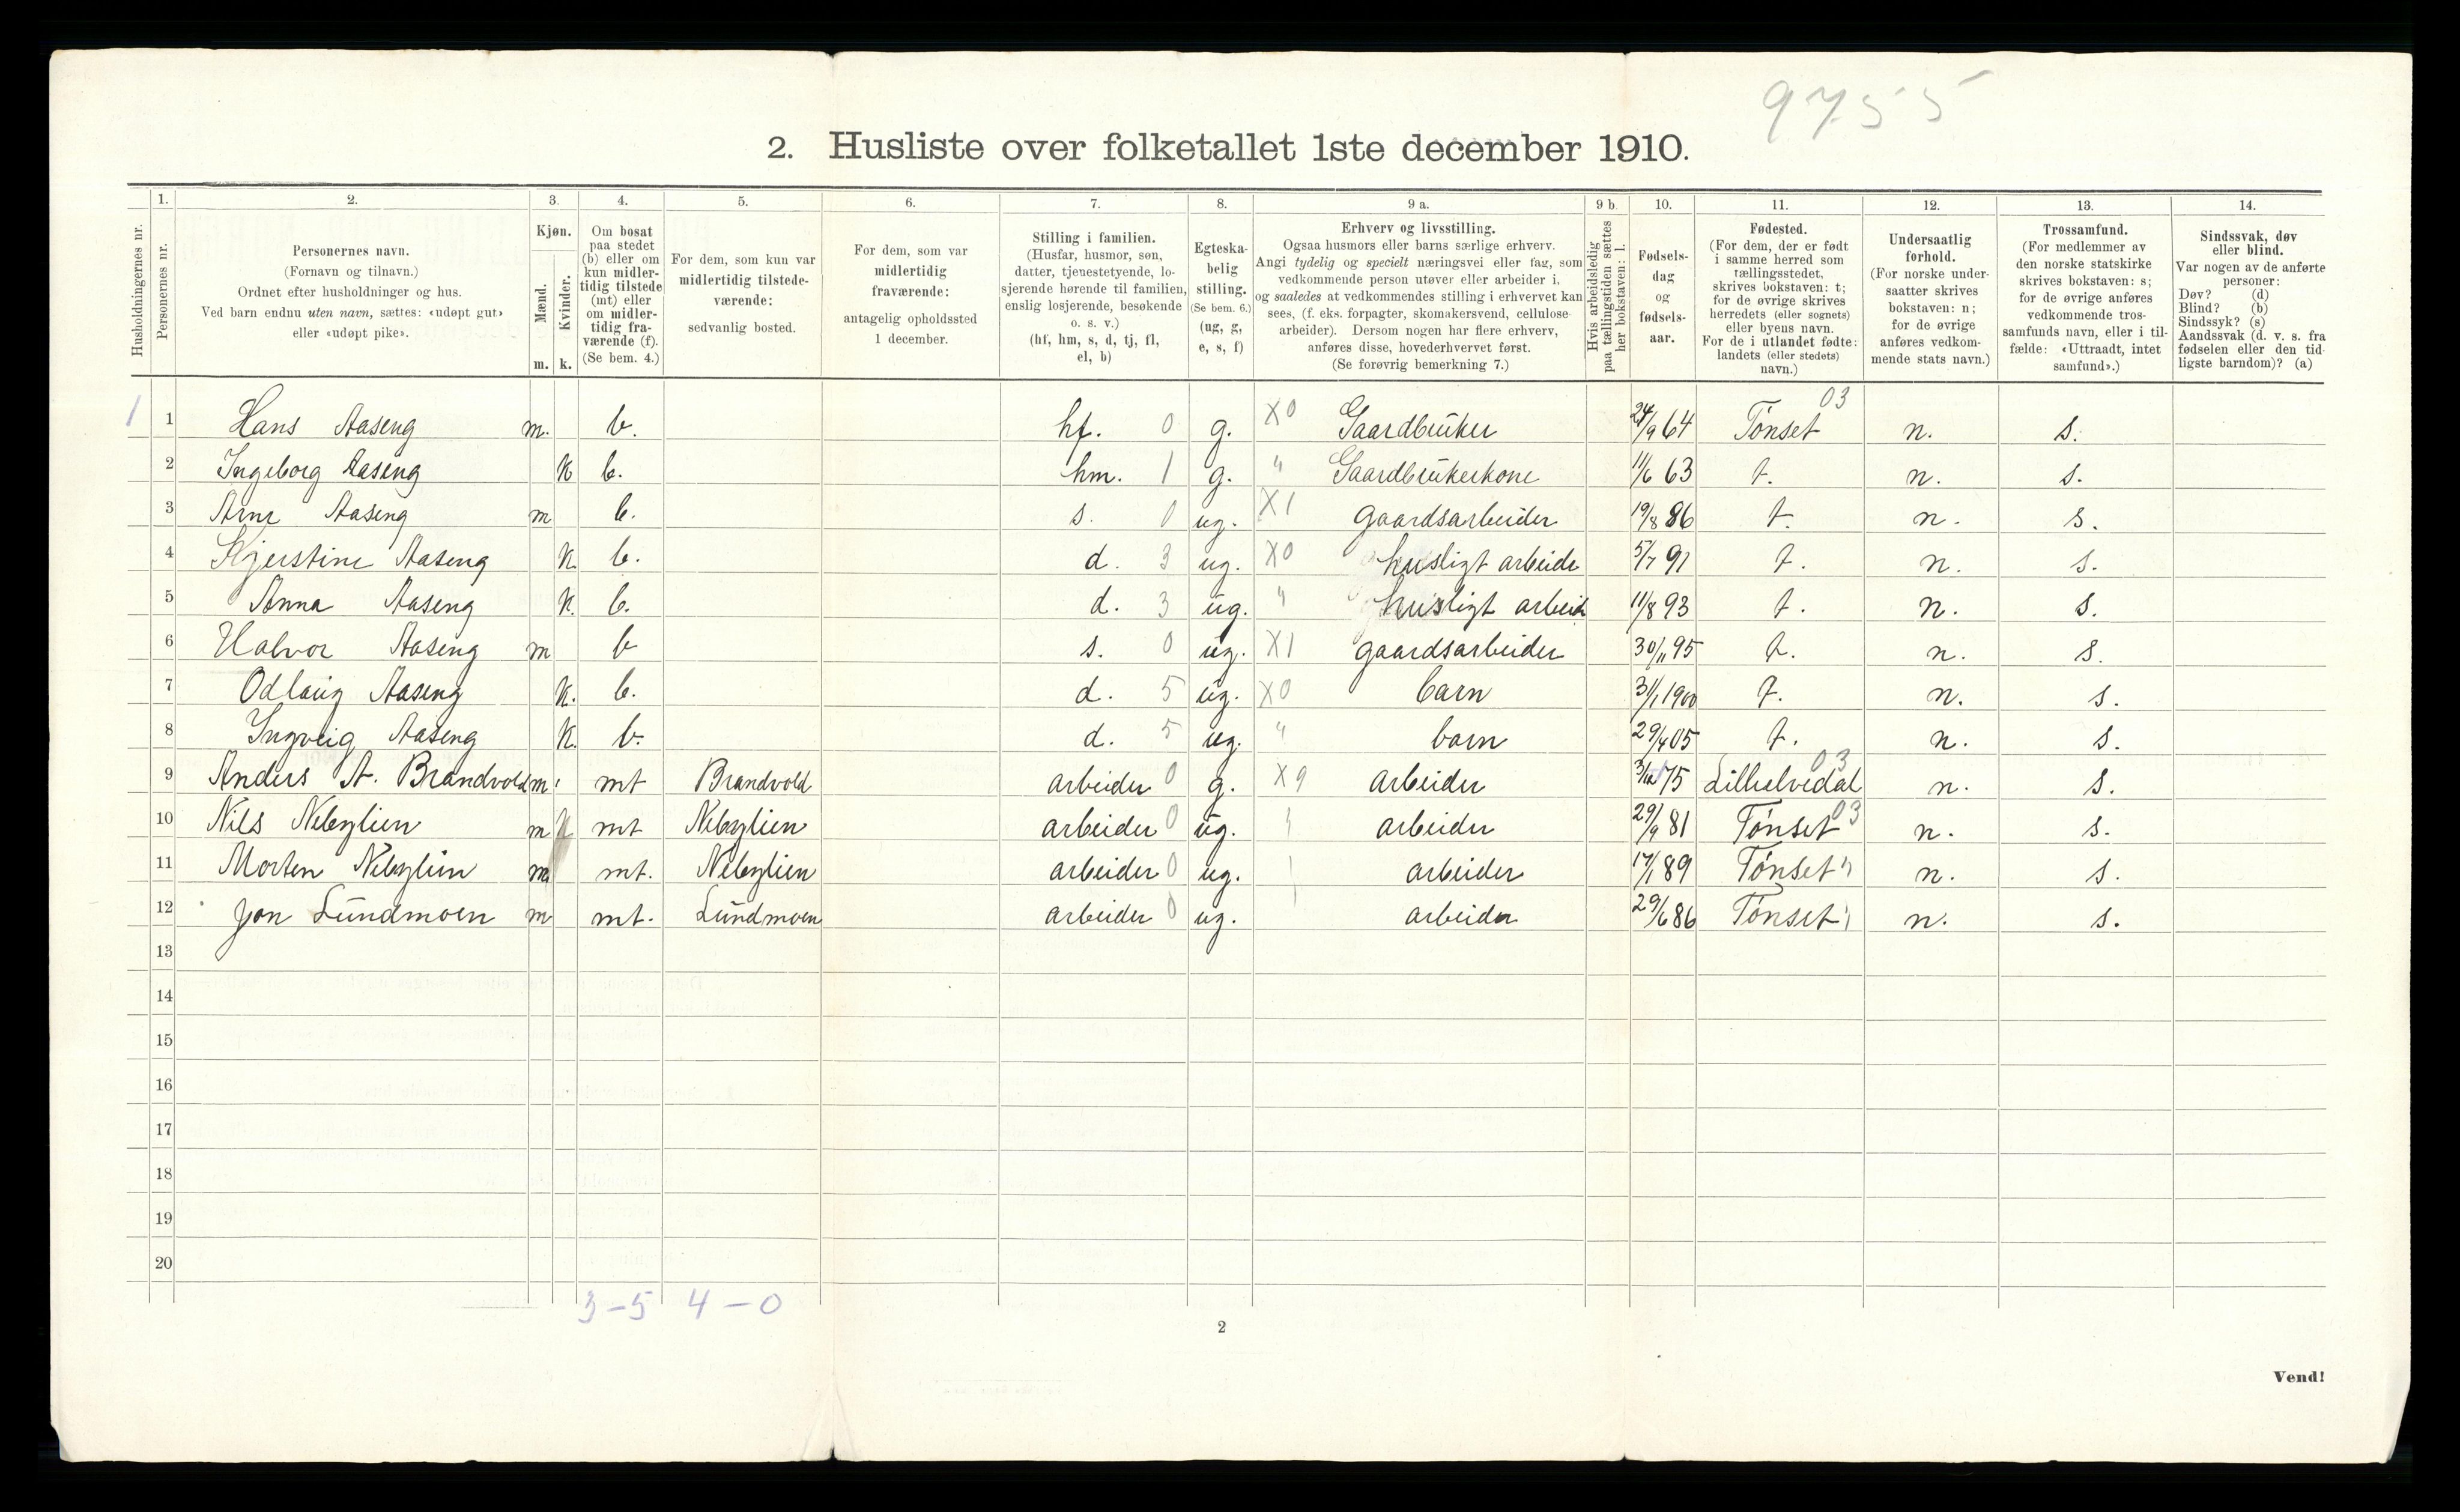 9755
2. Husliste over folketallet 1ste december 1910.
1. 2. 3. 4. 5. 6. 7. 8. 9 a. 9 b. 10. 11. 12. 13. 14.
Husholdningernes nr.
Personernes nr.
Personernes navn.
(Fornavn og tilnavn.)
Ordnet efter husholdninger og hus.
Ved barn endnu uten navn, sættes: «udøpt gut»
eller «udøpt pike».
Kjøn.
Mænd.
Kvinder.
m. k.
Om bosat
paa stedet
(b) eller om
kun midler-
tidig tilstede
(mt) eller
om midler-
tidig fra-
værende (f).
(Se bem. 4.)
For dem, som kun var
midlertidig tilstede-
værende:
sedvanlig bosted.
For dem, som var
midlertidig
fraværende:
antagelig opholdssted
1 december.
Stilling i familien.
(Husfar, husmor, søn,
datter, tjenestetyende, lo-
sjerende hørende til familien,
enslig losjerende, besøkende
o. s. v.)
(hf, hm, s, d, tj, fl,
el, b)
Egteska-
belig
stilling.
(Se bem. 6.)
(ug, g,
e, s, f)
Erhverv og livsstilling.
Ogsaa husmors eller barns særlige erhverv.
Angi tydelig og specielt næringsvei eller fag, som
vedkommende person utøver eller arbeider i,
og saaledes at vedkommendes stilling i erhvervet kan
sees, (f. eks. forpagter, skomakersvend, cellulose-
arbeider). Dersom nogen har flere erhverv,
anføres disse, hovederhvervet først.
(Se forøvrig bemerkning 7.)
Hvis arbeidsledig
paa tællingstiden sættes
her bokstaven: l.
Fødsels-
dag
og
fødsels-
aar.
Fødested.
(For dem, der er født
i samme herred som
tællingsstedet,
skrives bokstaven: t;
for de øvrige skrives
herredets (eller sognets)
eller byens navn.
For de i utlandet fødte:
landets (eller stedets)
navn.)
Undersaatlig
forhold.
(For norske under-
saatter skrives
bokstaven: n;
for de øvrige
anføres vedkom-
mende stats navn.)
Trossamfund.
(For medlemmer av
den norske statskirke
skrives bokstaven: s;
for de øvrige anføres
vedkommende tros-
samfunds navn, eller i til-
fælde: «Uttraadt, intet
samfund».)
Sindssvak, døv
eller blind.
Var nogen av de anførte
personer:
Døv? (d)
Blind? (b)
Sindssyk? (s)
Aandssvak (d. v. s. fra
fødselen eller den tid-
ligste barndom)? (a)
1 1 Hans Aaseng m. b. hf. 0 g. X0 Gaardbruker 24/9 64 Tønset 03 n. s.
2 Ingeborg Aaseng k b. hm. 1 g. " Gaardbrukerkone 11/6 63 t. n. s.
3 Arne Aaseng m b. s. 0 ug. X1 gaardsarbeider 19/8 86 t. n. s.
4 Kjerstine Aaseng k. b. d. 3 ug. X0 husligt arbeide 5/7 91 t. n. s.
5 Anna Aaseng k. b. d. 3 ug. " husligt arbeide 11/8 93 t. n. s.
6 Halvor Aaseng m b s. 0 ug. X1 gaardsarbeider 30/11 95 t. n. s.
7 Odlaug Aaseng k. b. d. 5 ug. X0 barn 31/1 1900 t. n. s.
8 Ingveig Aaseng k. b. d. 5 ug. " barn 29/4 05 t. n. s.
9 Anders A. Brandvold m. mt Brandvold arbeider 0 g. X9 arbeider 3/12 75 Lilleelvedal 03 n. s.
10 Nils Nebylien m mt Nebylien arbeider 0 ug. arbeider 29/9 81 Tønset 03 n. s.
11 Morten Nebylien m mt. Nebylien arbeider 0 ug. arbeider 17/1 89 Tønset " n. s.
12 Jon Lundmoen m mt. Lundmoen arbeider 0 ug. arbeider 29/6 86 Tønset " n. s.
13
14
15
16
17
18
19
20
3-5 4-0
2
Vend!